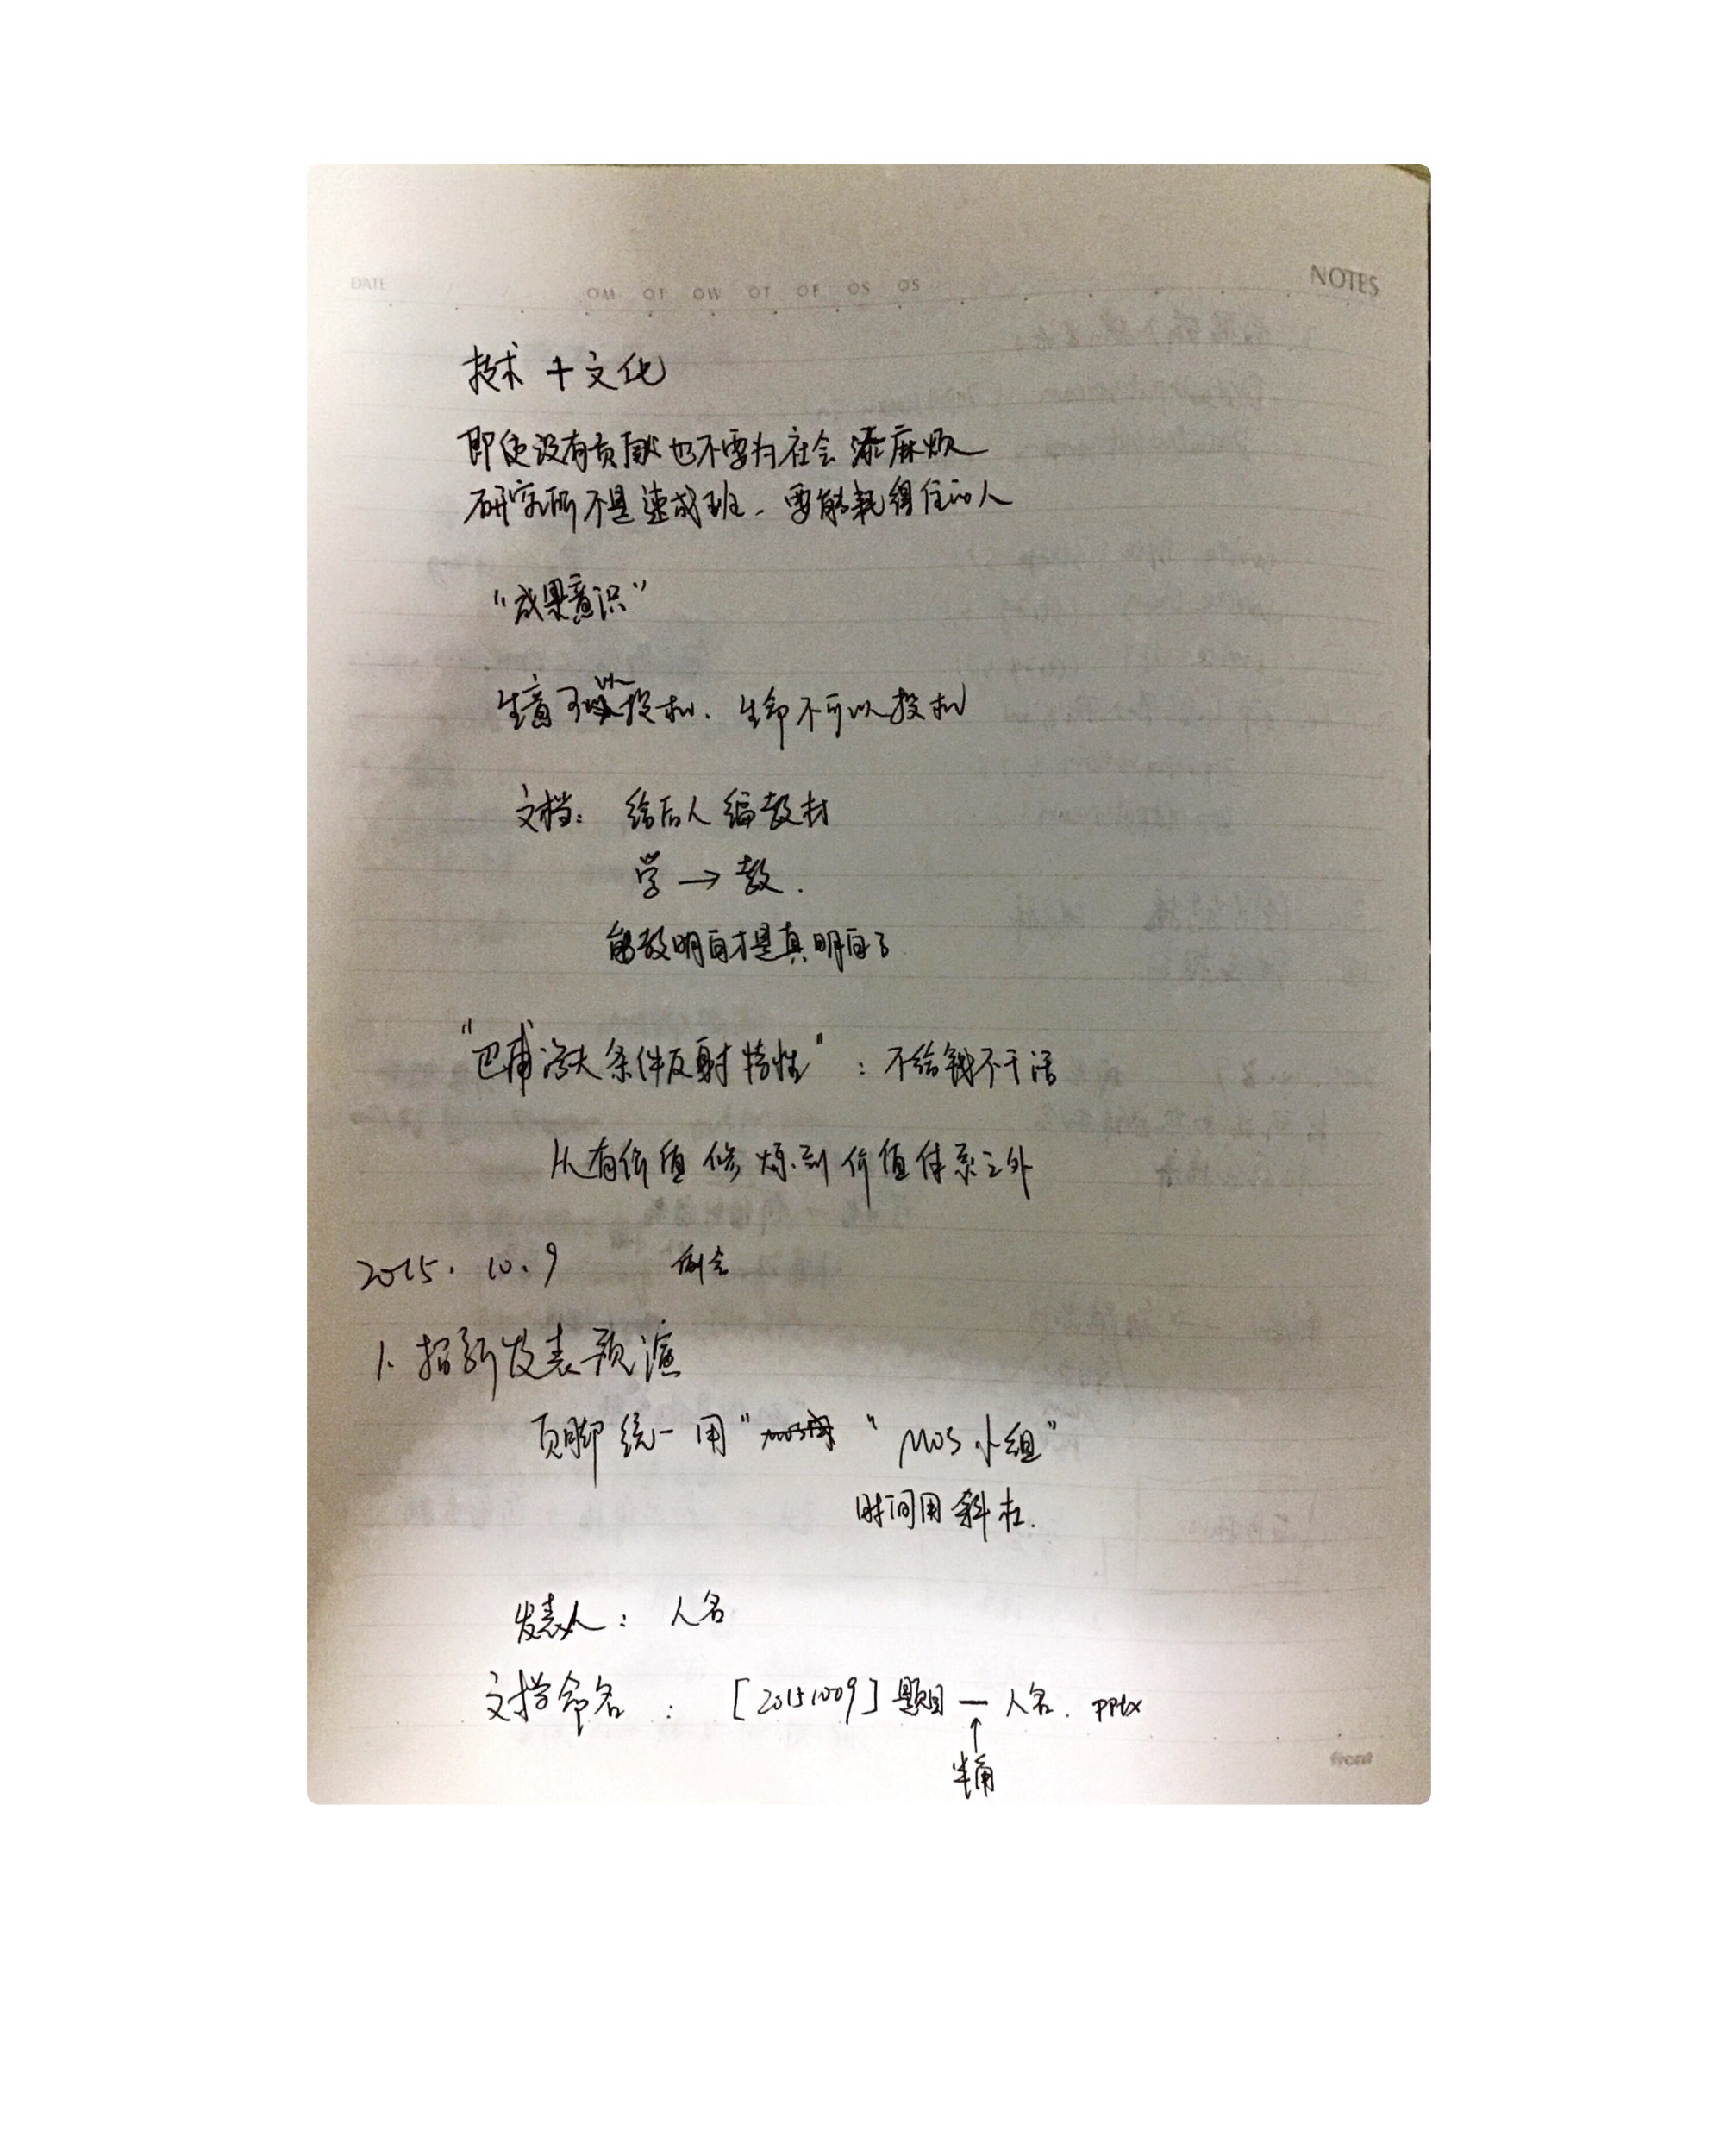 DATE OM OT OW OT OF OS OS NOTES
技术 + 文化
即使没有贡献也不要为社会添麻烦
研究所不是速成班、要能耗得住的人
"成果意识"
生意可以投机、生命不可以投机
文档： 给后人编教材
学 → 教.
能教明白才是真明白了
"巴甫洛夫条件反射特性"：不给钱不干活
从有价值修炼到价值体系之外
2015. 10. 9 例会
1. 招新发表预演
页脚统一用" "MOS小组"
时间用斜杠.
发表人： 人名
文档命名 ： [20151009]题目—人名. pptx
↑
半角
front